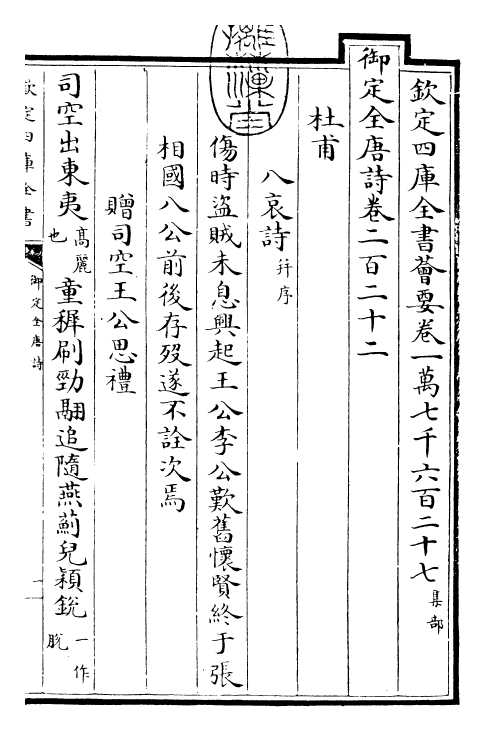 欽定四庫全書薈要卷一萬七千六百二十七 集部
御定全唐詩卷二百二十二
杜甫
八哀詩 并序
傷時盜賊未息興起王公李公歎舊懷賢終于張
相國八公前後存歿遂不詮次焉
贈司空王公思禮
司空出東夷 高麗也 童穉刷勁翮追隨燕薊兒穎銳 一作脫
欽定四庫全書
御定全唐詩
一